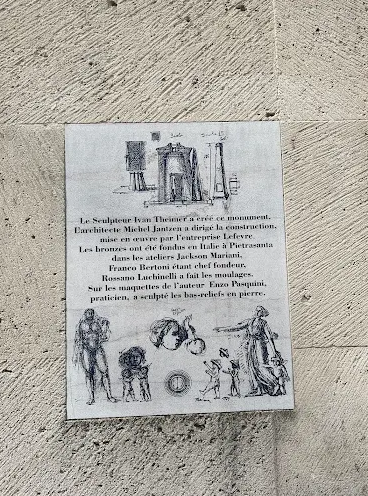 Le Sculpteur Ivan Theimer a créé ce monument.
L'architecte Michel Jantzen a dirigé la construction,
mise en œuvre par l'entreprise Lefevre
Les bronzes ont été fondus en Italie à Pietrasanta
dans les ateliers Jackson Mariani,
Franco Bertoni étant chef fondeur.
Rossano Luchinelli a fait les moulages.
Sur les maquettes de l'auteur Enzo Pasquini,
praticien, a sculpté les bas-reliefs en pierre.